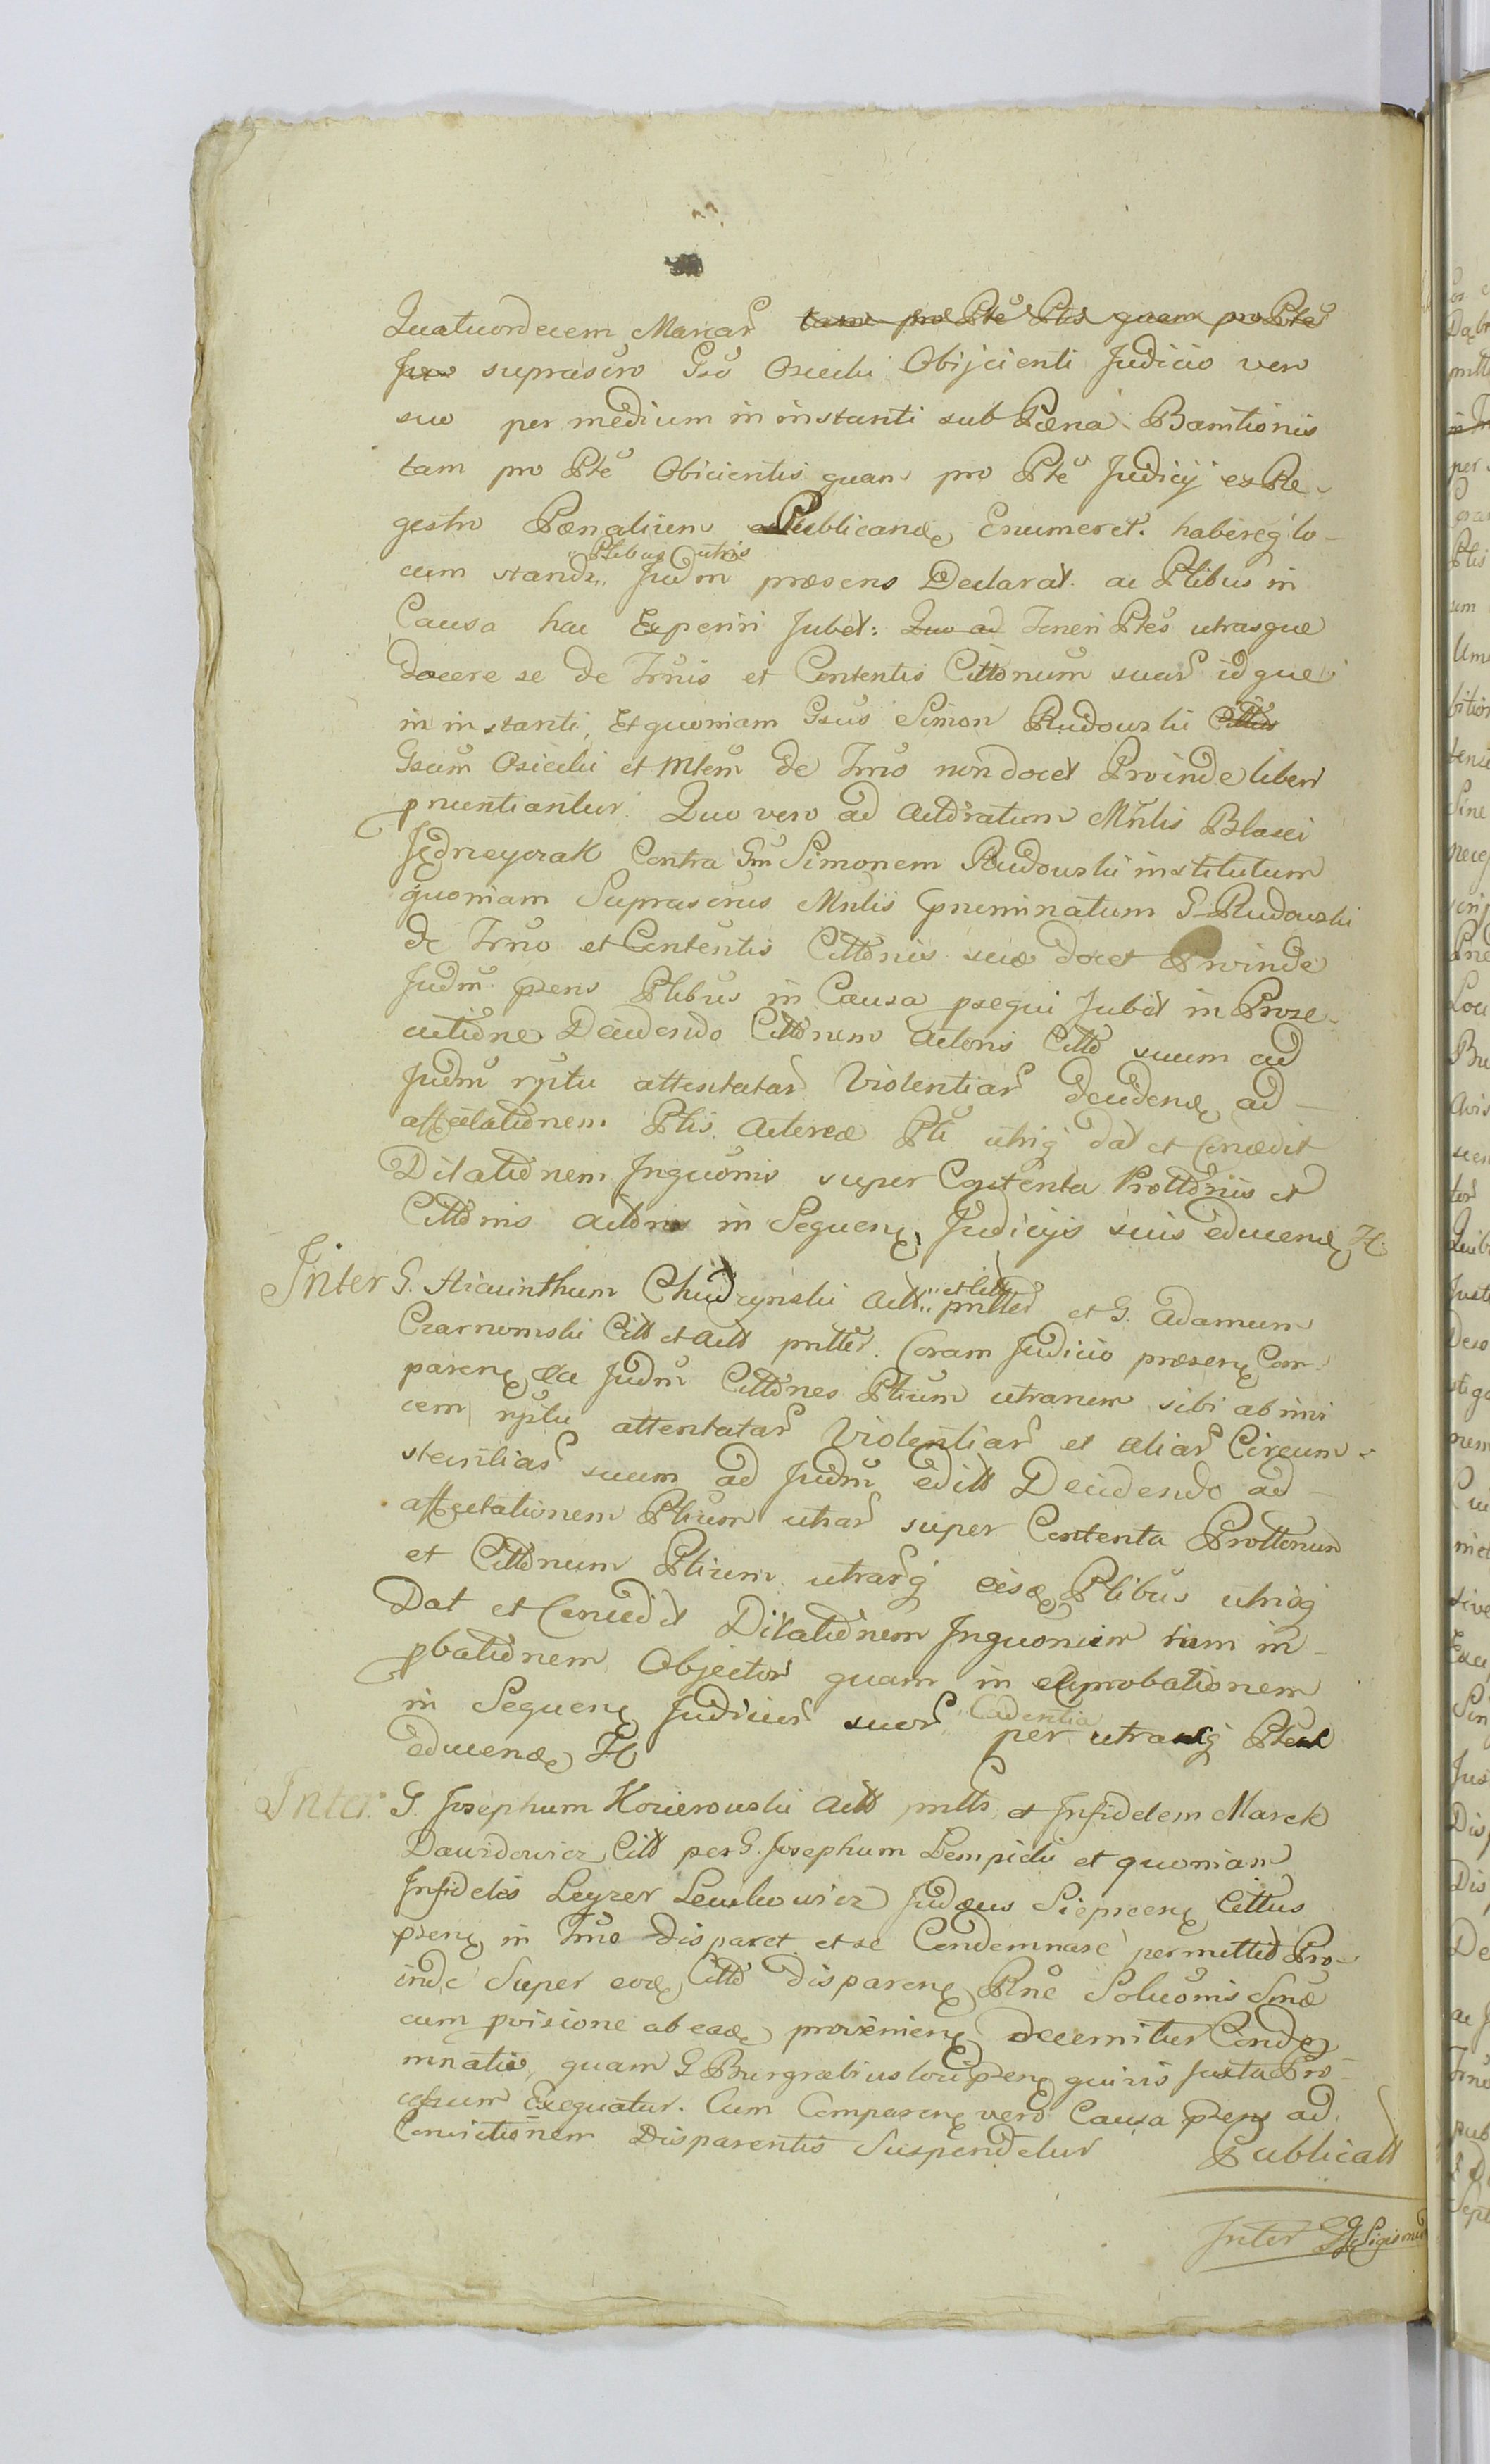 Quatuordecem Marcar tam pro Pte Ptis quam pro Pte
Juro suprascro Gso Osiecki Obijcienti Judicio vero
suo per medium in instanti sub Pæna Banitionis
tam pro Pte Obicientis quam pro Pte Judicij ex Re-
gestro Pænalium Publicandæ Enumeret. habereq lo-
Ptibus utris
cum standi Judm præsens Declarat. ac Ptibus in
Causa hac Experiri Jubet: Quo ad Teneri Ptes utrasque
docere se de Trnis et Contentis Cittonum suar idque
in instanti, Et quoniam Gsus Simon Rudowski Cittus
Gsum Osiecki et Mtem de Trno non docet Proinde liberi
pnuntiantur. Quo vero ad Actoratum Mnlis Blasei
Jędrzeyczak Contra Gm Simonem Rudowski institutum
quoniam Suprascrus Mnlis pnominatum G Rudowski
de Trno et Contentis Cittonis suæ docet Proinde
Judm psens Ptibus in Causa psequi Jubet in Prose-
cutione Decidendo Cittonem Actoris Citto suum ad
Judm rptu attentatar Violentiar decidend ad
affectationem Ptis Actoreæ Pti utriq dat et Concedit
Dilationem Inquonis super Contenta Prottonis et
Cittonis Actoris in Sequen Judicijs suis educend H.
Inter G. Hiacinthum Chudzynski Actt et Citt pntter et G. Adamum
Czarnomski Citt et Actt pntter. Coram Judicio præsen Com-
paren Ea Judm Cittones Ptium utrarum sibi ab invi
cem rptu attentatar Violentiar et aliar Circum-
stantiar suum ad Judm editt Decidendo ad
affectationem Ptium utrar super Contenta Prottonum
et Cittonum Ptium utrarq eisd Ptibus utrisq
Dat et Concedit Dilationem Inquonum tum in
pbationem Objector quam in Eprobationem
Cadentia
in Sequen Judicior suor per utramq Ptem
educend H
Inter G. Josephum Kozierowski Actt pntts et Infidelem Marek
Dawidowicz Citt per G. Josephum Lempicki et quoniam
Infidelis Leyzer Lewkowicz Judæus Siepreen Cittus
psens in Trno disparet et se Condemnare permittit Pro-
inde Super eod Citto disparen Rne Soluonis Smæ
cum pvisione ab ead provenien decernitur Conde
mnatio, quam G Burgrabius loci psens quivis Juxta Pro
cessum Exequatur. Cum Comparen vero Causa psens ad
Convictionem Disparentis Suspenditur Publicatt
Inter GG Sigismu